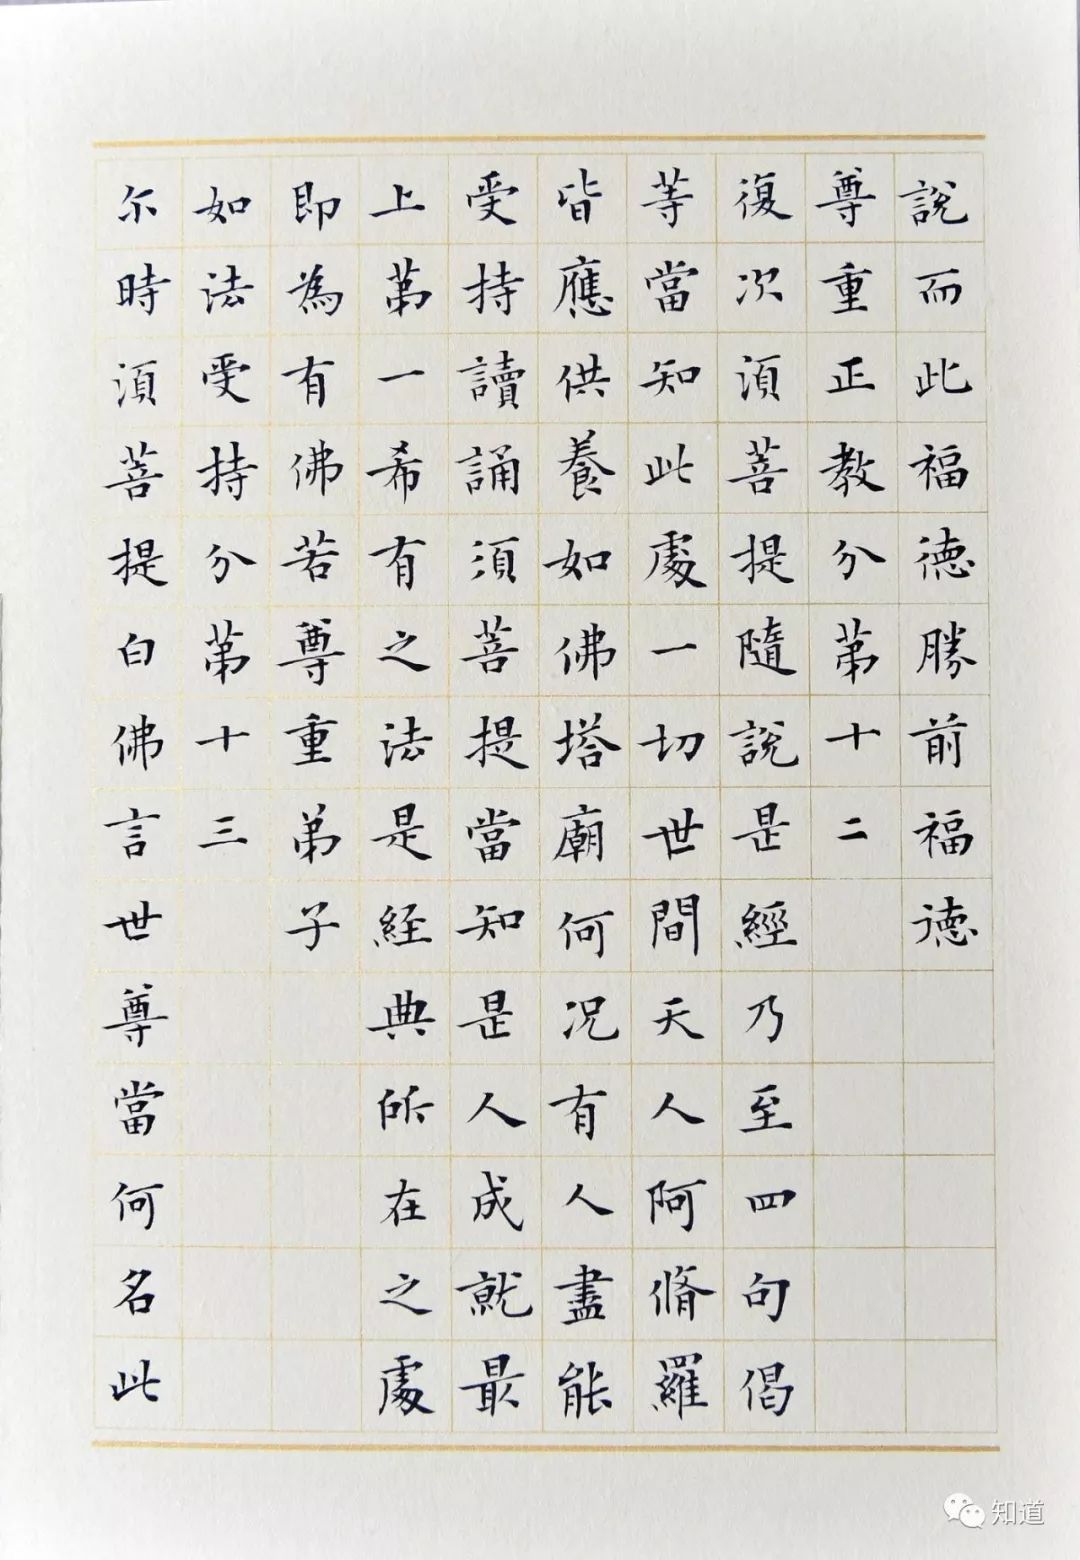 說而此福德勝前福德
尊重正教分第十二
復次須菩提隨說是經乃至四句偈
等當知此處一切世間天人阿脩羅
皆應供養如佛塔廟何況有人盡能
受持讀誦須菩提當知是人成就最
上第一希有之法是経典所在之處
即為有佛若尊重弟子
如法受持分第十三
尒時須菩提白佛言世尊當何名此
知道